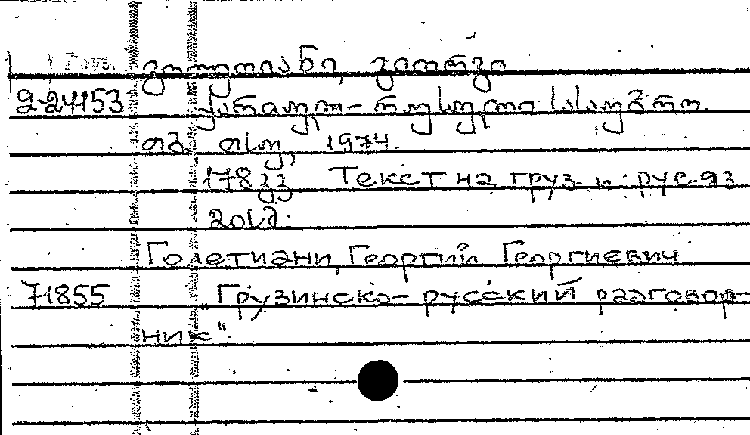 გოლეთიანი, გიორგი
2-24153 ქართულ-რუსული სასაუბრო.
თბ. თსუ, 1974.
178 გვ. Текст на груз. и рус. яз.
Голетиани, Георгий Георгиевич
71855 "Грузинско-русский разговор-
ник".